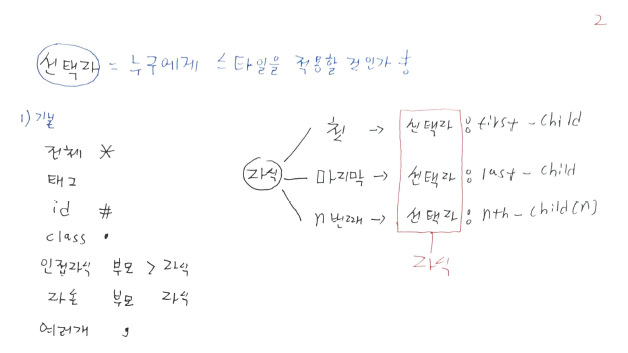 2
선택자 = 누구에게 스타일을 적용할 것인가 !
1) 기본
전체 *
태그
id #
class .
인접자식 부모 > 자식
자손 부모 자식
여러개 ,
자식
첫 → 선택자 : first - child
마지막 → 선택자 : last - child
n번째 → 선택자 : nth - child(n)
자식